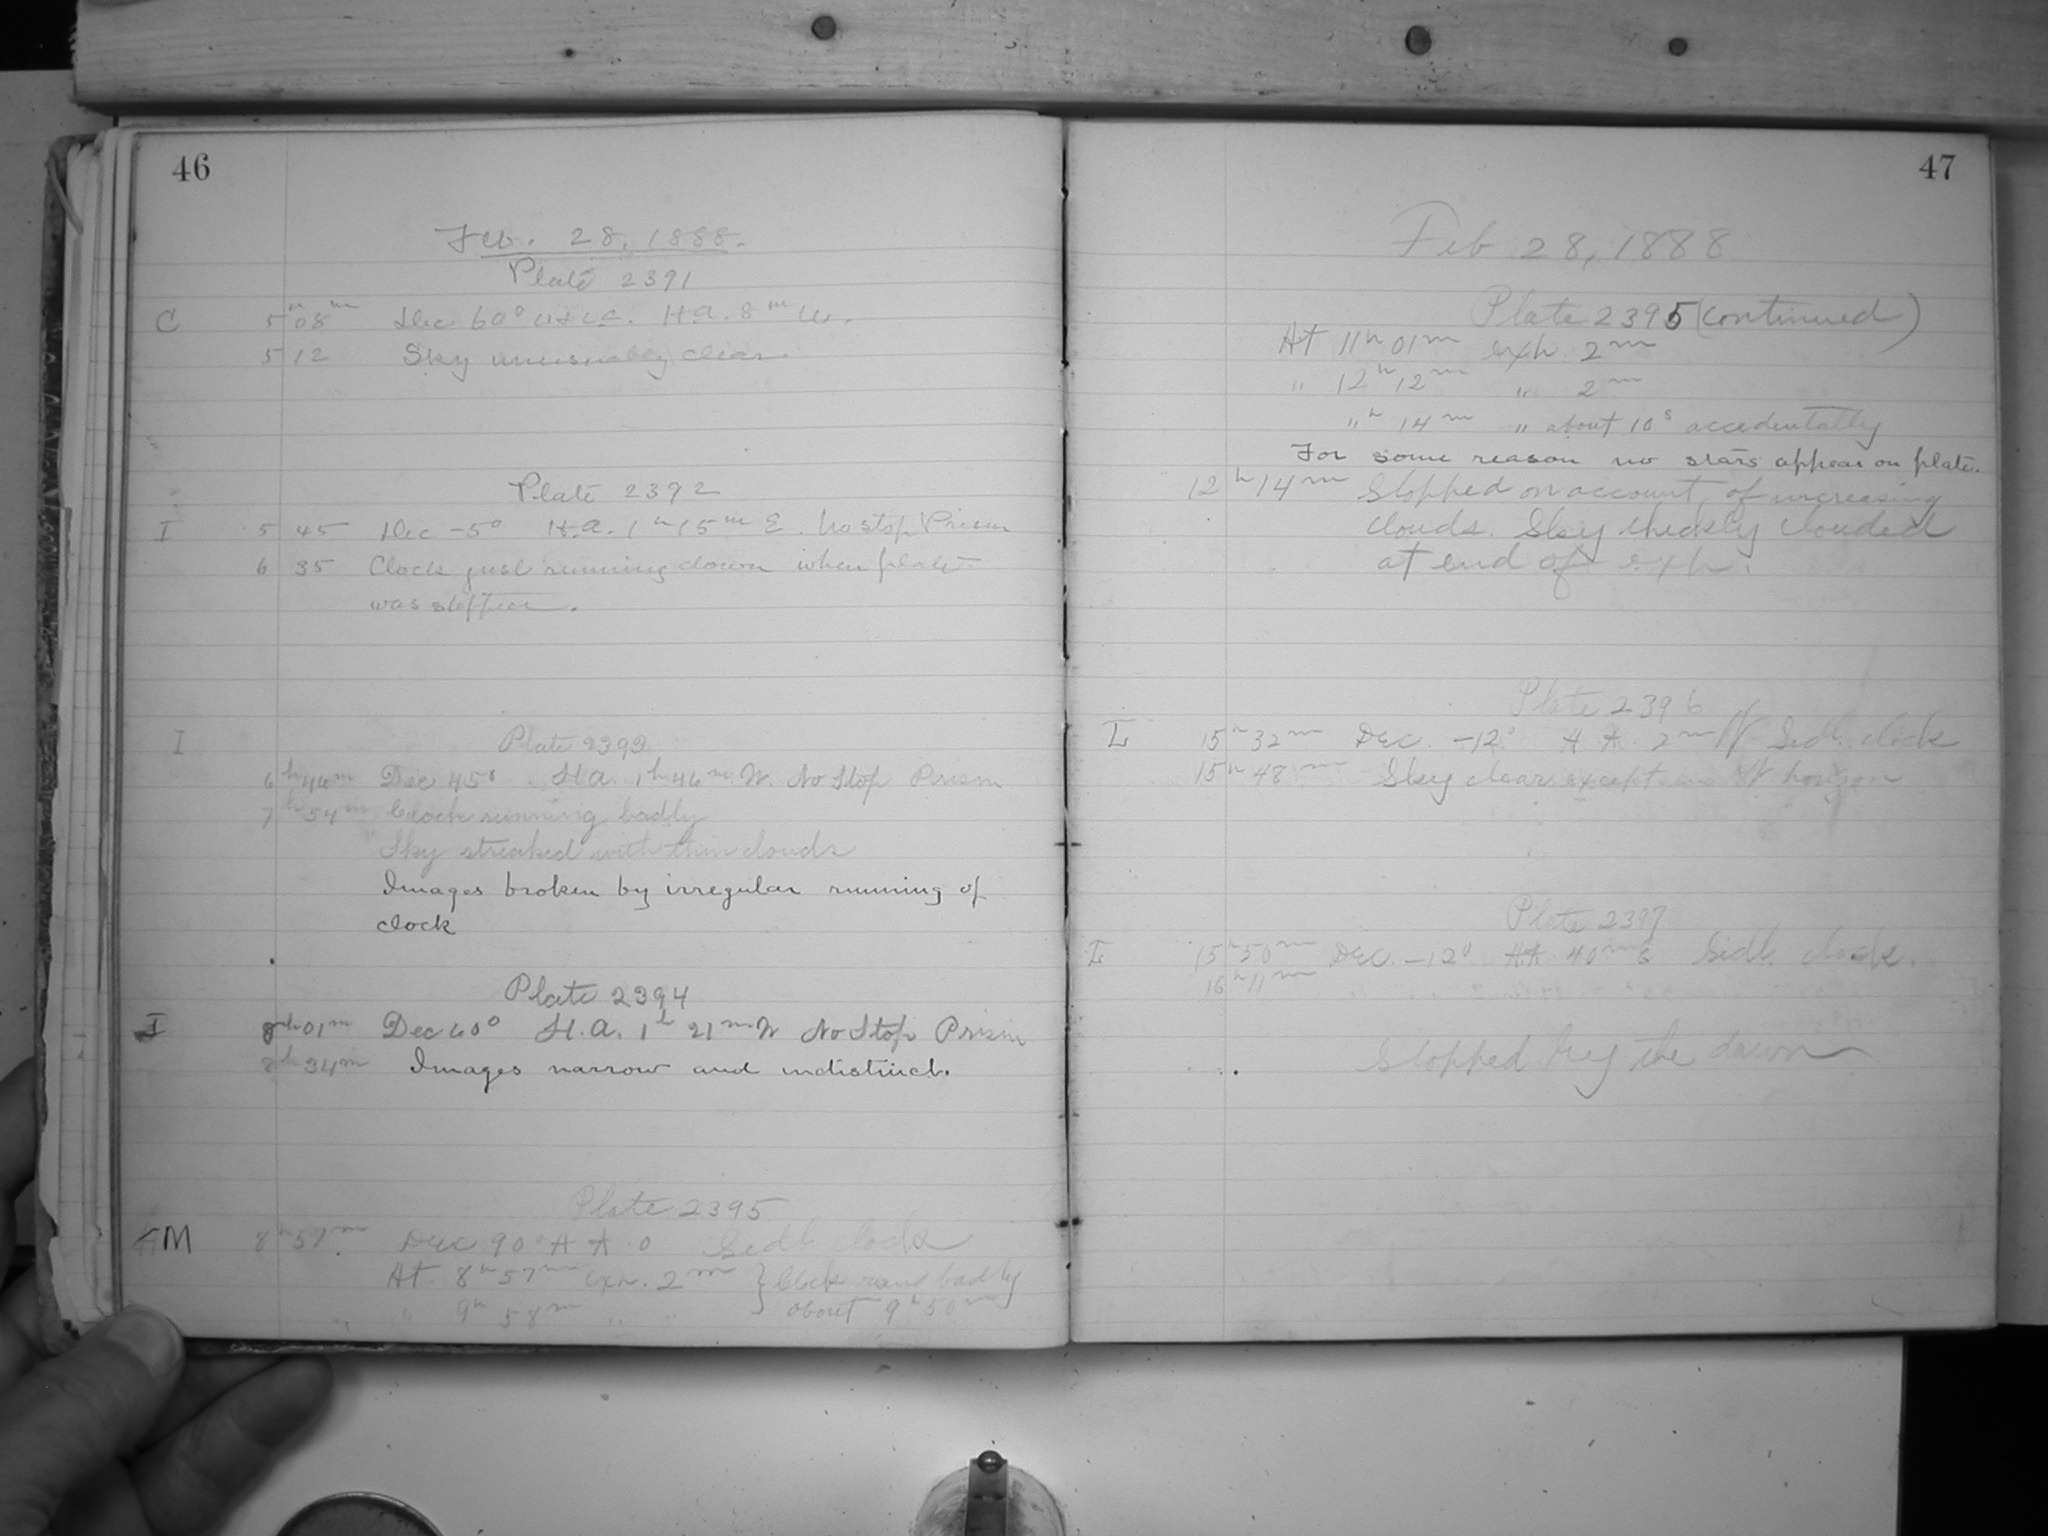 46
Feb. 28, 1888.
Plate 2391
C 5h 08m Dec 60° H.a. 8m W.
5 12 Sky unusually clear.
Plate 2392
I 5 45 Dec -5° H.a. 1h 15m E. No stop Prism
6 35 Clock just running down when plate
was stopped.
Plate 2393
I
6h 46m Dec 45° H.a. 1h 46m W. No Stop Prism
7h 54m Clock running badly
Sky streaked with thin clouds
Images broken by irregular running of
clock
Plate 2394
I 8h 01m Dec 60° H.a. 1h 21m W No Stop Prism
8h 34m Images narrow and indistinct.
Plate 2395
M 8h 57m Dec 90° H A 0 Sidl clock
At 8h 57m exp. 2m } Clock rang badly
" 9h 58m " " about 9h 50m
47
Feb 28, 1888
Plate 2395 (continued)
At 11h 01m exp. 2m
" 12h 12m " 2m
"h 14m " about 10s accidentally
For some reason no stars appear on plate.
12h 14m Stopped on account of increasing
clouds. Sky thickly clouded
at end of exp.
Plate 2396
L 15h 32m Dec. -12° H A. 2m W Sidl. clock
15h 48m Sky clear except in W horizon
Plate 2397
L 15h 50m Dec. -12° H.A. 40m E Sidl. clock.
16h 11m
Stopped by the dawn